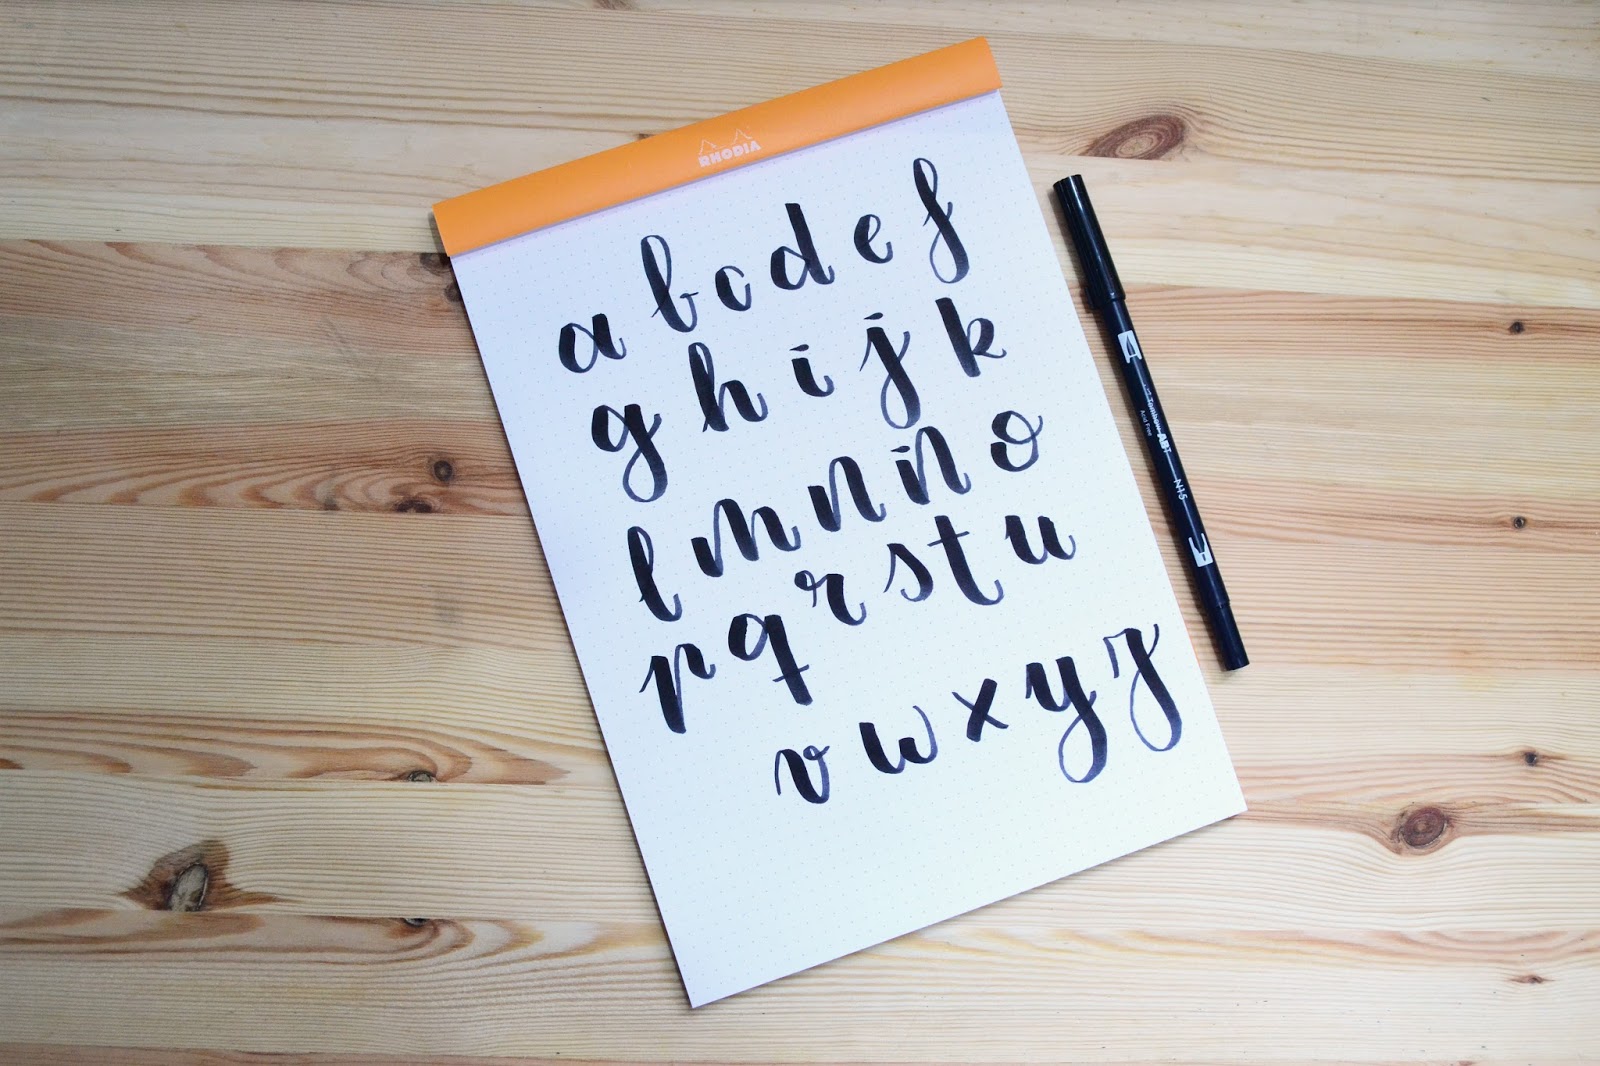 RHODIA
a b c d e f
g h i j k
l m n ñ o
p q r s t u
v w x y z
Tombow ABT
Acid Free
N15